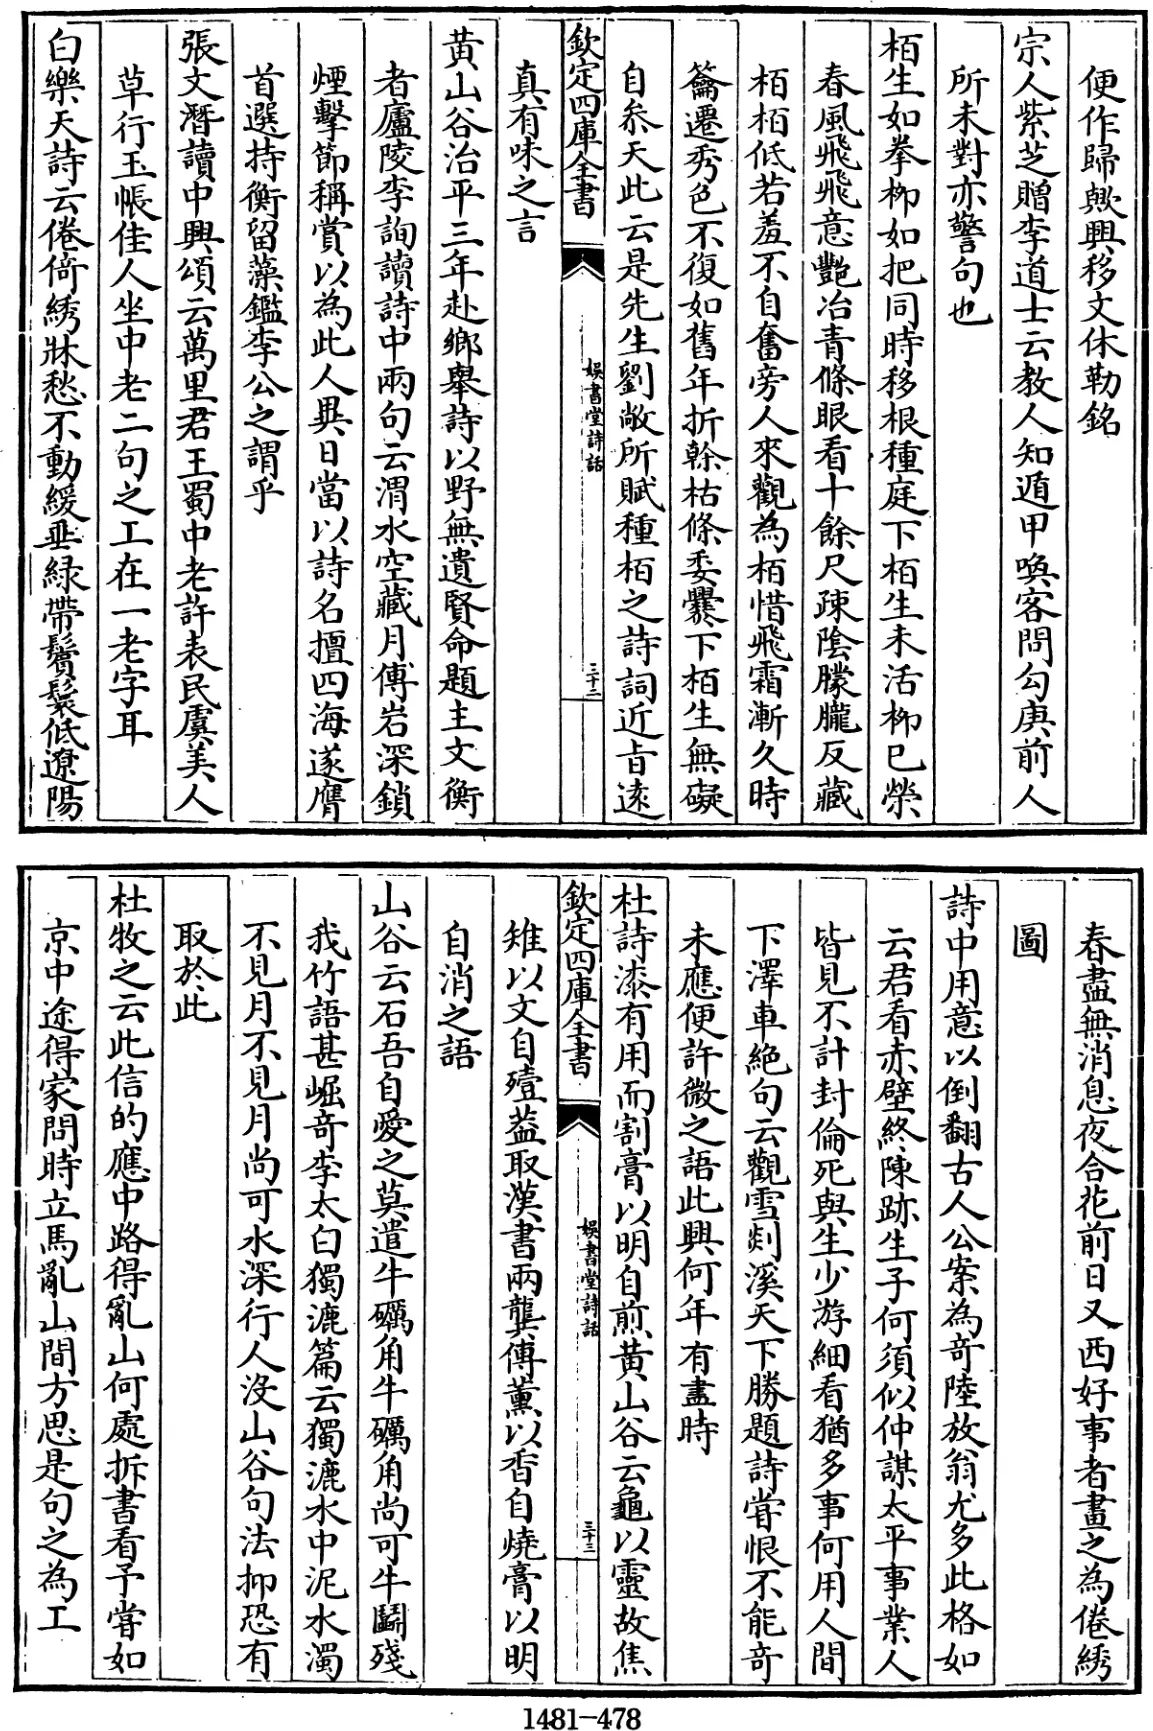 便作歸歟興移文休勒銘
宗人紫芝贈李道士云教人知遁甲喚客問勾庚前人
所未對亦警句也
栢生如拳柳如把同時移根種庭下栢生未活柳已榮
春風飛飛意豔冶青條眼看十餘尺疎陰朦朧反藏
栢栢低若羞不自奮旁人來觀為栢惜飛霜漸久時
籥遷秀色不復如舊年折榦枯條委爨下栢生無礙
自叅天此云是先生劉敞所賦種栢之詩詞近旨逺
欽定四庫全書
娛書堂詩話
三十二
真有味之言
黄山谷治平三年赴鄉舉詩以野無遺賢命題主文衡
者廬陵李詢讀詩中兩句云渭水空藏月傅岩深鎖
煙擊節稱賞以為此人異日當以詩名擅四海遂膺
首選持衡留藻鑑李公之謂乎
張文潛讀中興頌云萬里君王蜀中老許表民虞美人
草行玉帳佳人坐中老二句之工在一老字耳
白樂天詩云倦倚綉牀愁不動緩垂緑帶鬢鬟低遼陽
春盡無消息夜合花前日又西好事者畫之為倦綉
圖
詩中用意以倒翻古人公案為奇陸放翁尤多此格如
云君看赤壁終陳跡生子何須似仲謀太平事業人
皆見不計封倫死與生少游細看猶多事何用人間
下澤車絶句云觀雪剡溪天下勝題詩甞恨不能奇
未應便許微之語此興何年有盡時
杜詩漆有用而割膏以明自煎黄山谷云龜以靈故焦
欽定四庫全書
娛書堂詩話
三十三
雉以文自殪葢取漢書兩龔傳薰以香自燒膏以明
自消之語
山谷云石吾自愛之莫遣牛礪角牛礪角尚可牛鬭殘
我竹語甚崛奇李太白獨漉篇云獨漉水中泥水濁
不見月不見月尚可水深行人沒山谷句法抑恐有
取於此
杜牧之云此信的應中路得亂山何處拆書看予甞如
京中途得家問時立馬亂山間方思是句之為工
1481-478